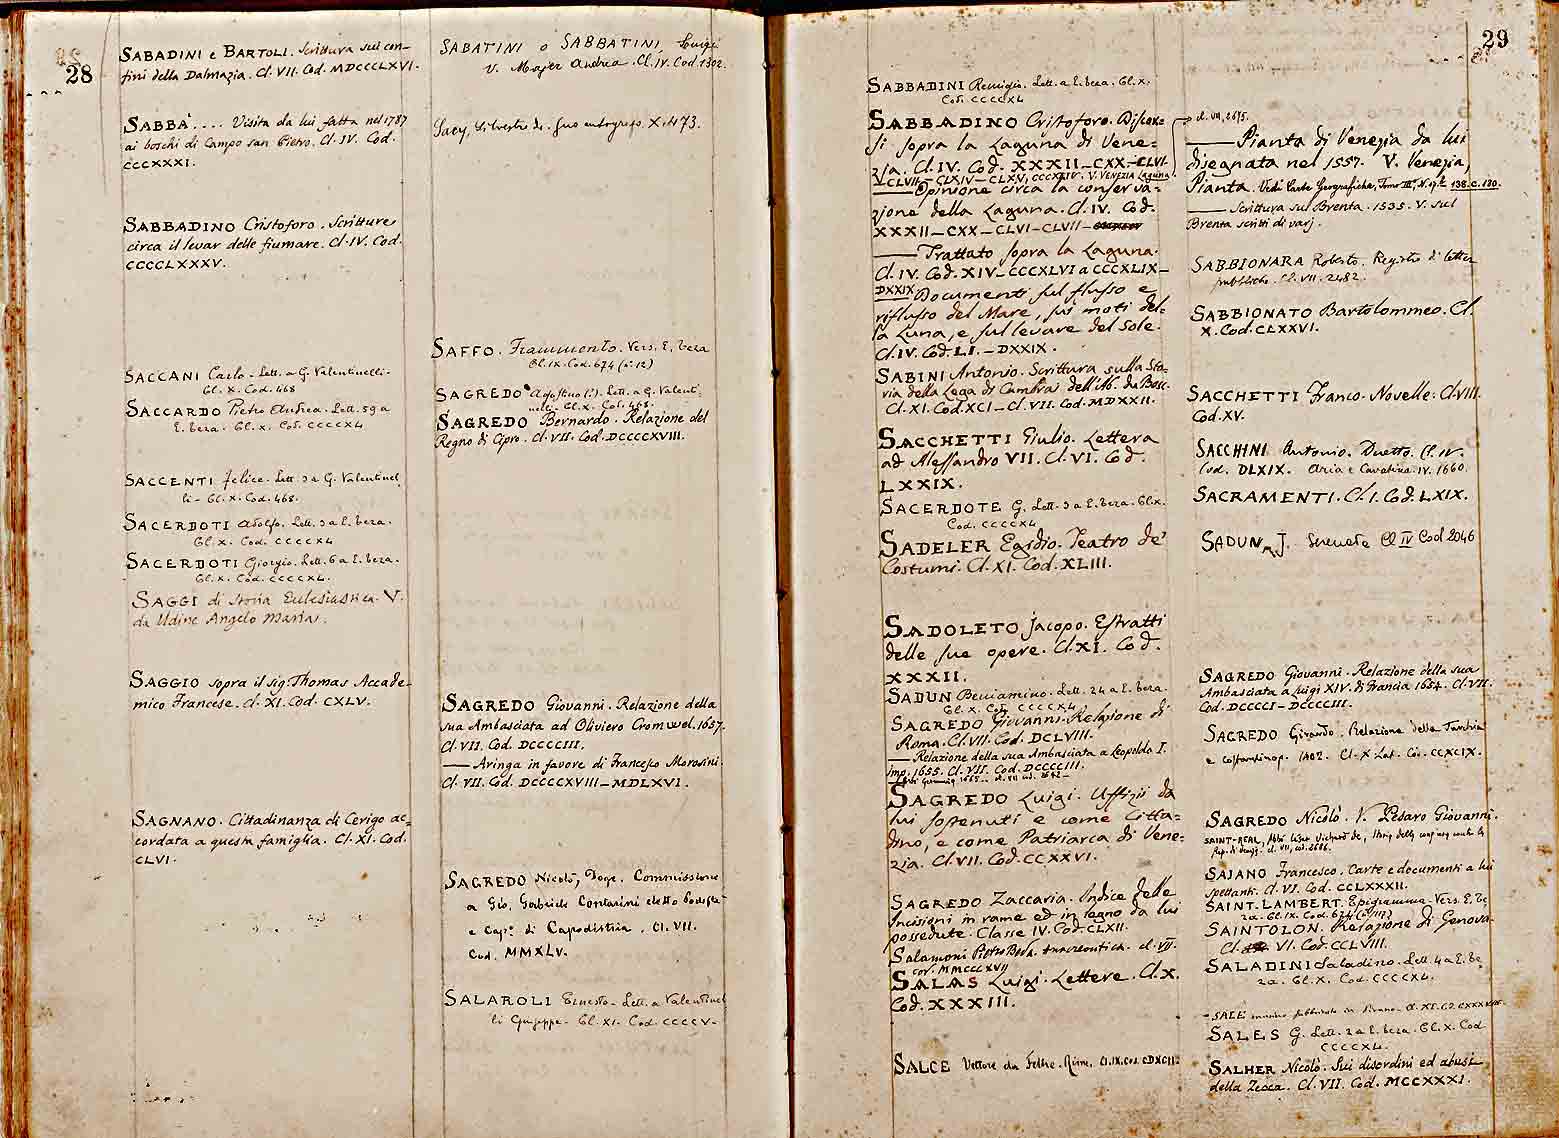 28
SABADINI e BARTOLI. Scrittura sui con-
fini della Dalmazia. Cl. VII. Cod. MDCCCLXVI.
SABBA' .... Visita da lui fatta nel 1787
ai boschi di Campo san Pietro. Cl. IV. Cod.
CCCXXXI.
SABBADINO Cristoforo. Scritture
circa il levar delle fiumare. Cl. IV. Cod.
CCCCLXXXV.
SACCANI Carlo - Lett. a G. Valentinelli -
Cl. X. Cod. 468
SACCARDO Pietro Andrea. Lett. 59 a
E. Teza. Cl. X. Cod. CCCCXL
SACCENTI Felice. Lett. 3 a G. Valentinel
li - Cl. X. Cod. 468.
SACERDOTI Adolfo. Lett. 3 a E. Teza.
Cl. X. Cod. CCCCXL
SACERDOTI Giorgio. Lett. 6 a E. Teza.
Cl. X. Cod. CCCCXL.
SAGGI di Storia Ecclesiastica. V.
da Udine Angelo Maria.
SAGGIO sopra il sig. Thomas Accade-
mico Francese. Cl. XI. Cod. CXLV.
SAGNANO. Cittadinanza di Cerigo ac-
cordata a questa famiglia. Cl. XI. Cod.
CLVI.
SABATINI o SABBATINI, Luigi
V. Majer Andrea. Cl. IV. Cod. 1302.
Sacy, Silvestre de. Suo autografo. X. 473.
SAFFO. Frammento. Vers. E. Teza
Cl. IX. Cod. 674 (n. 12)
SAGREDO Agostino (?). Lett. a G. Valenti
nelli Cl. X. Cod. 468.
SAGREDO Bernardo. Relazione del
Regno di Cipro. Cl. VII. Cod. DCCCCXVIII.
SAGREDO Giovanni. Relazione della
sua Ambasciata ad Oliviero Cromwel. 1657.
Cl. VII. Cod. DCCCCIII.
—— Aringa in favore di Francesco Morosini.
Cl. VII. Cod. DCCCCXVIII — MDLXVI.
SAGREDO Nicolò, Doge. Commissione
a Gio. Gabriele Contarini eletto Podestà
e Cap.º di Capodistria. Cl. VII.
Cod. MMXLV.
SALAROLI Ernesto - Lett. a Valentinel
li Giuseppe - Cl. XI. Cod. CCCCV -
29
SABBADINI Remigio. Lett. a E. Teza. Cl. X.
Cod. CCCCXL
SABBADINO Cristoforo. Discor-
si sopra la Laguna di Vene-
zia. Cl. IV. Cod. XXXII — CXX — CLVI-
CLVII — CLXIV — CLXV, CCCXLIV. V. VENEZIA Laguna
—— Opinione circa la conserva-
zione della Laguna. Cl. IV. Cod.
XXXII — CXX — CLVI — CLVII —
—— Trattato sopra la Laguna.
Cl. IV. Cod. XIV — CCCXLVI a CCCXLIX —
DXXIX
Documenti sul flusso e
riflusso del Mare, sui moti del-
la Luna, e sul levare del Sole.
Cl. IV. Cod. LI. — DXXIX.
SABINI Antonio. Scrittura sulla Sto-
ria della Lega di Cambrai dell'Ab. du Bos.
Cl. XI. Cod. XCI — Cl. VII. Cod. MDXXII.
SACCHETTI Giulio. Lettera
ad Alessandro VII. Cl. VI. Cod.
LXXIX.
SACERDOTE G. Lett. 3 a E. Teza. Cl. X.
Cod. CCCCXL
SADELER Egidio. Teatro de'
Costumi. Cl. XI. Cod. XLIII.
SADOLETO Jacopo. Estratti
delle sue opere. Cl. XI. Cod.
XXXII.
SADUN Beniamino. Lett. 24 a E. Teza.
Cl. X. Cod. CCCCXL
SAGREDO Giovanni. Relazione di
Roma. Cl. VII. Cod. DCLVIII.
—— Relazione della sua Ambasciata a Leopoldo I.
Imp. 1655. Cl. VII. Cod. DCCCCIII.
SAGREDO Luigi. Uffizii da
lui sostenuti e come Citta-
dino, e come Patriarca di Vene-
zia. Cl. VII. Cod. CCXXVI.
SAGREDO Zaccaria. Indice delle
Incisioni in rame ed in legno da lui
possedute. Classe IV. Cod. CLXII.
Salamoni Pietro Bon. Anacreontica. cl. VII.
cod. MMCCCXVII
SALAS Luigi. Lettere. Cl. X.
Cod. XXXIII.
SALCE Vettore da Feltre. Rime. Cl. IX. Cod. CDXCII.
cl. VII, 2675.
—— Pianta di Venezia da lui
disegnata nel 1557. V. Venezia,
Pianta. Vedi Carte Geografiche, Tomo III, N. 138. c. 180.
—— Scrittura sul Brenta. 1535. V. sul
Brenta scritti di varj.
SABBIONARA Roberto. Registro di lettere
pubbliche. Cl. VII. 2482.
SABBIONATO Bartolommeo. Cl.
X. Cod. CLXXVI.
SACCHETTI Franco. Novelle. Cl. VIII.
Cod. XV.
SACCHINI Antonio. Duetto. Cl. IV.
Cod. DLXIX. Aria e Cavatina. IV. 1660.
SACRAMENTI. Cl. I. Cod. LXIX.
SADUN J. Serenata Cl IV Cod 2046
SAGREDO Giovanni. Relazione della sua
Ambasciata a Luigi XIV. di Francia 1654. Cl. VII.
Cod. DCCCCI — DCCCCIII.
SAGREDO Girardo. Relazione della Turchia
e Costantinop. 1402. Cl. X Lat. Cod. CCXCIX.
SAGREDO Nicolò. V. Pesaro Giovanni.
SAINT-REAL, Abbé
cl. VII, cod. 2686.
SAJANO Francesco. Carte e documenti a lui
spettanti. Cl. VI. Cod. CCLXXXII.
SAINT. LAMBERT. Epigramma. Vers. E. Te
za. Cl. IX. Cod. 674 (n. 117)
SAINTOLON. Relazione di Genova.
Cl. VI. Cod. CCLVIII.
SALADINI Saladino. Lett. 4 a E. Te
za. Cl. X. Cod. CCCCXL.
SALE
SALES G. Lett. 2 a E. Teza. Cl. X. Cod
CCCCXL.
SALHER Nicolò. Sui disordini ed abusi
della Zecca. Cl. VII. Cod. MCCXXXI.